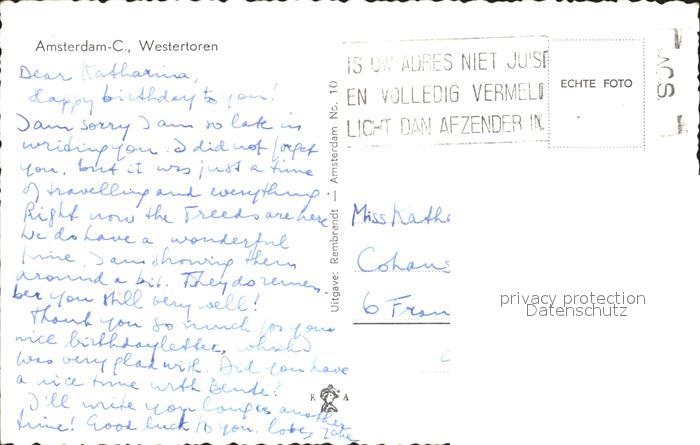 Amsterdam-C., Westertoren
Dear Katharina,
Happy birthday to you!
I am sorry I am so late in
writing you. I did not forget
you, but it was just a time
of travelling and everything.
Right now the Freeds are here
We do have a wonderful
time. I am showing them
around a bit. They do remem-
ber you still very well!
Thank you so much for your
nice birthdayletter, which I
was very glad with. Did you have
a nice time with Bente?
I'll write you longer another
time! Good luck to you. Love,
Uitgave: Rembrandt — Amsterdam No. 10
R A
IS UW ADRES NIET JUIST
EN VOLLEDIG VERMELD
LICHT DAN AFZENDER IN
ECHTE FOTO
Miss Katha
Cohaus
6 Fran
privacy protection
Datenschutz